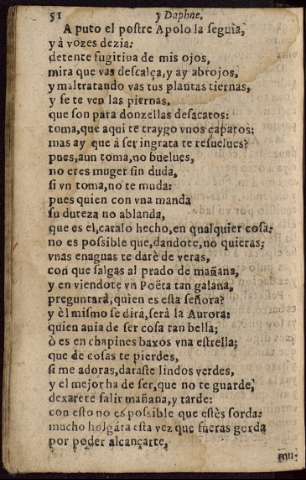 51
y Daphne.
A puto el postre Apolo la seguia,
y à vozes dezia:
detente fugitiua de mis ojos,
mira que vas descalça, y ay abrojos,
y maltratando vas tus plantas tiernas,
y se te ven las piernas,
que son para donzellas desacatos:
toma, que aqui te traygo vnos çapatos:
mas ay que à ser ingrata te resuelues?
pues, aun toma, no buelues,
no eres muger sin duda,
si vn toma, no te muda:
pues quien con vna manda
su dureza no ablanda,
que es el, cataлo hecho, en qualquier cosa:
no es possible que, dandote, no quieras;
vnas enaguas te darè de veras,
con que salgas al prado de mañana,
y en viendote vn Poëta tan galana,
preguntarà, quien es esta señora?
y èl mismo se dirà, serà la Aurora:
quien auia de ser cosa tan bella;
ò es en chapines baxos vna estrella;
que de cosas te pierdes,
si me adoras, daraste lindos verdes,
y el mejor ha de ser, que no te guarde,
dexarete salir mañana, y tarde:
con esto no es possible que estès sorda:
mucho holgàra esta vez que fueras gorda
por poder alcançarte,
mu-